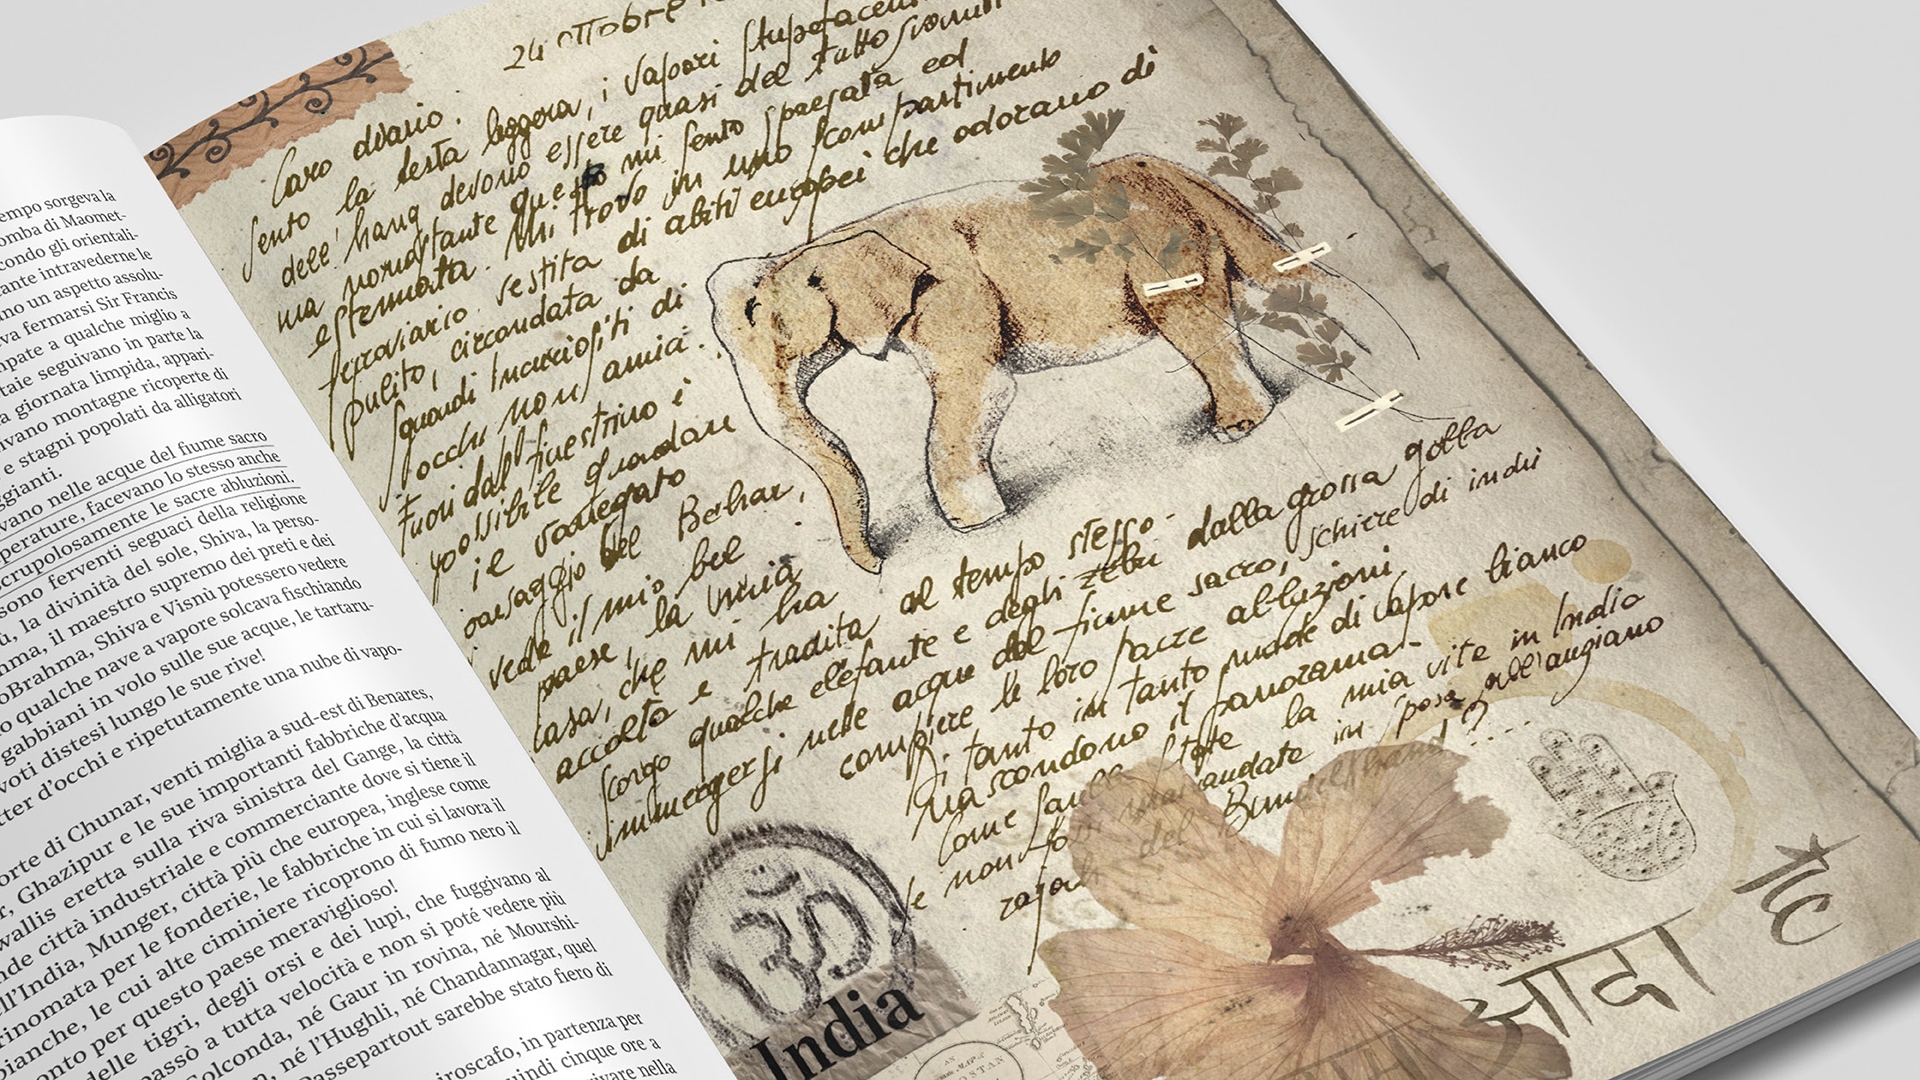 empo sorgeva la
omba di Maomet-
condo gli orientali-
tante intravederne le
no un aspetto assolu-
va fermarsi Sir Francis
mpate a qualche miglio a
taie seguivano in parte la
a giornata limpida, appari-
ivano montagne ricoperte di
e stagni popolati da alligatori
ggianti.
vano nelle acque del fiume sacro
perature, facevano lo stesso anche
scrupolosamente le sacre abluzioni.
sono ferventi seguaci della religione
ù, la divinità del sole, Shiva, la perso-
hma, il maestro supremo dei preti e dei
o Brahma, Shiva e Visnù potessero vedere
o qualche nave a vapore solcava fischiando
gabbiani in volo sulle sue acque, le tartaru-
voti distesi lungo le sue rive!
tter d'occhi e ripetutamente una nube di vapo-
orte di Chunar, venti miglia a sud-est di Benares,
r, Ghazipur e le sue importanti fabbriche d'acqua
wallis eretta sulla riva sinistra del Gange, la città
nde città industriale e commerciante dove si tiene il
ll'India, Munger, città più che europea, inglese come
rinomata per le fonderie, le fabbriche in cui si lavora il
bianche, le cui alte ciminiere ricoprono di fumo nero il
onto per questo paese meraviglioso!
delle tigri, degli orsi e dei lupi, che fuggivano al
passò a tutta velocità e non si poté vedere più
Golconda, né Gaur in rovina, né Mourshi-
n, né l'Hughli, né Chandannagar, quel
Passepartout sarebbe stato fiero di
iroscafo, in partenza per
quindi cinque ore a
rivare nella
24 ottobre
Caro diario.
Sento la testa leggera, i vapori stupefacenti
dell'hang devono essere quasi del tutto svaniti
ma nonostante questo mi sento spaesata ed
estenuata. Mi trovo in uno scompartimento
ferroviario vestita di abiti europei che odorano di
pulito, circondata da
sguardi incuriositi di
occhi non amici.
Fuori dal finestrino è
possibile guardare
il variegato
paesaggio del Behar,
vede il mio bel
paese, la mia
casa, che mi ha
accolta e tradita al tempo stesso.
Scorgo qualche elefante e degli zebù dalla grossa gobba
immergersi nelle acque del fiume sacro, schiere di indù
compiere le loro sacre abluzioni.
Di tanto in tanto nubi di vapore bianco
nascondono il panorama.
Come sarebbe stata la mia vita in India
se non fossi stata data in sposa all'anziano
rajah del Bundelkhand!?...
ॐ
India
आदा